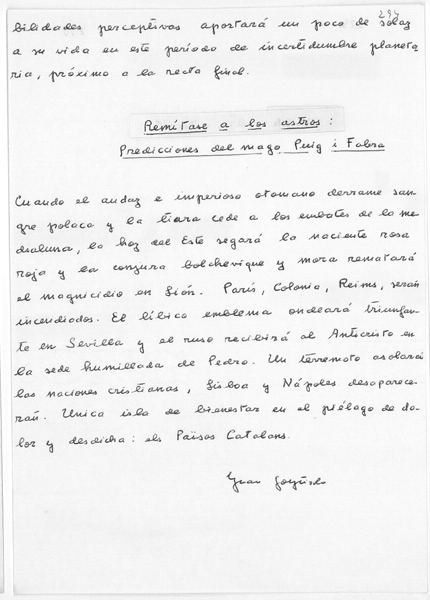 294
bilidades perceptivas aportará un poco de solaz
a su vida en este período de incertidumbre planeta
ria, próximo a la recta final.
Remítase a los astros:
Predicciones del mago Puig i Fabra
Cuando el audaz e imperioso otomano derrame san
gre polaca y la tiara cede a los embates de la me
dialuna, la hoz del Este segará la naciente rosa
roja y la conjura bolchevique y mora rematará
el magnicidio en Lión. París, Colonia, Reims, serán
incendiados. El bíblico emblema ondeará triunfan
te en Sevilla y el ruso recibirá al Anticristo en
la sede humillada de Pedro. Un terremoto asolará
las naciones cristianas, Lisboa y Nápoles desaparece
rán. Unica isla de bienestar en el piélago de do
lor y desdicha: els Països Catalans.
Juan Goytisolo